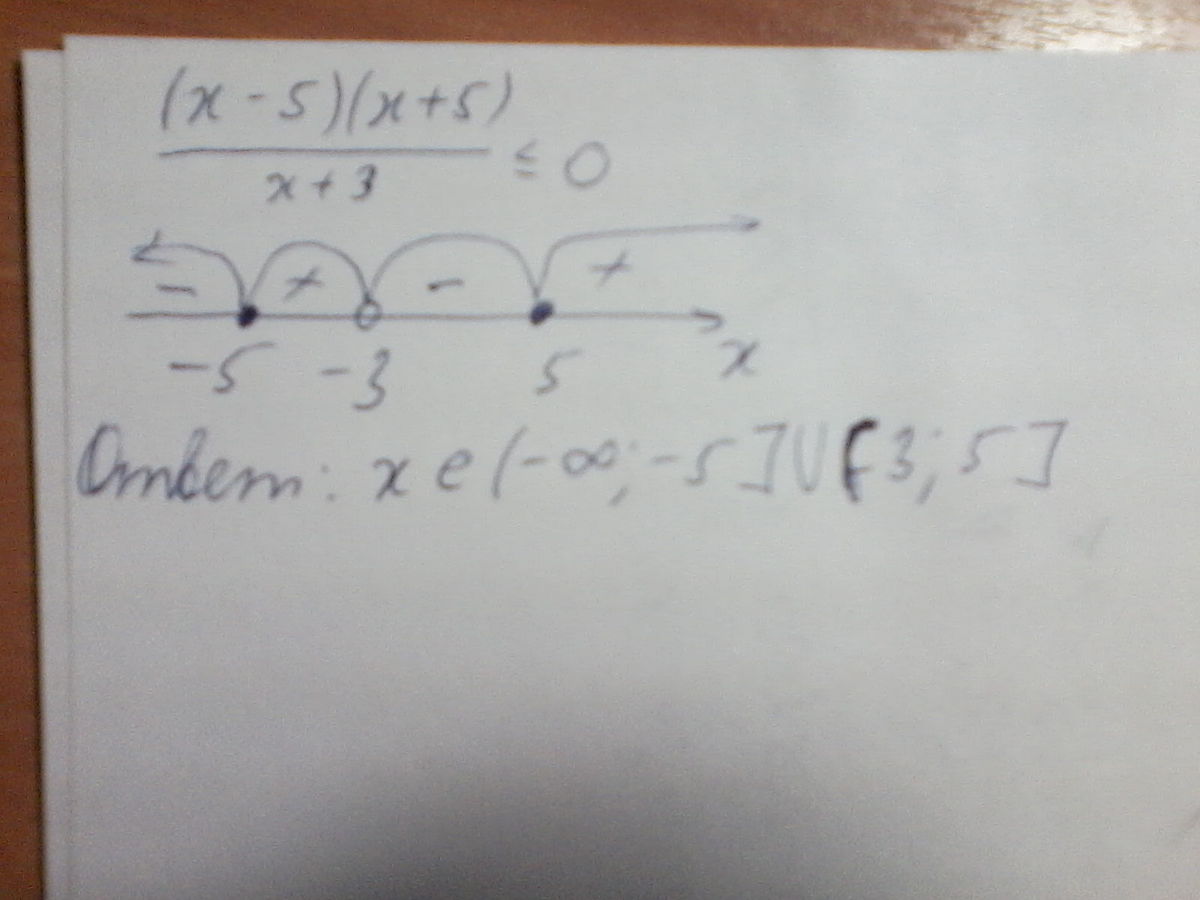 (x - 5)(x + 5)
x + 3
≤ 0
- + - +
-5 -3 5 x
Ответ: x ∈ (-∞; -5] ∪ (-3; 5]